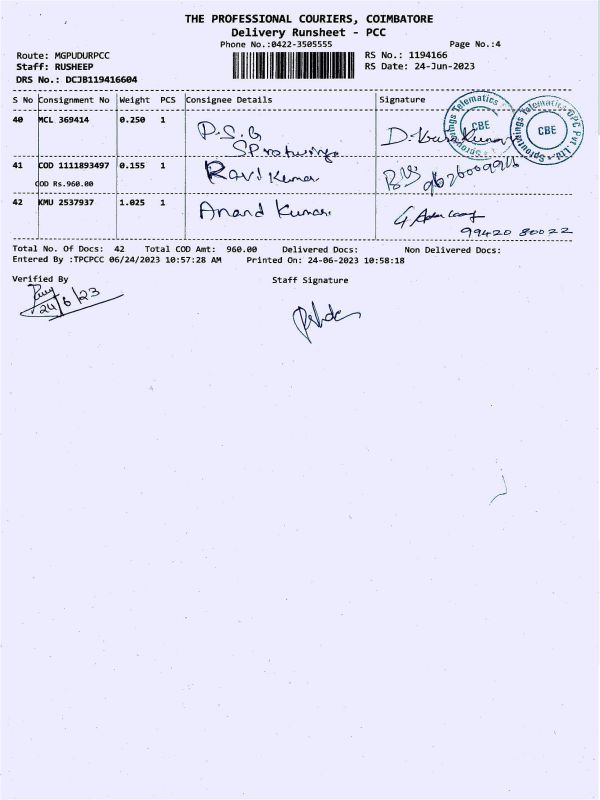 THE PROFESSIONAL COURIERS, COIMBATORE
Delivery Runsheet - PCC
Phone No.:0422-3505555
Page No.:4
Route: MGPUDURPCC
RS No.: 1194166
Staff: RUSHEEP
RS Date: 24-Jun-2023
DRS No.: DCJB119416604
S No Consignment No Weight PCS Consignee Details Signature
40 MCL 369414 0.250 1 P.S.G
41 COD 1111893497 0.155 1 Ravi Kumar
COD Rs.960.00
42 KMU 2537937 1.025 1 Anand Kumar
99420 80022
CBE
CBE
Total No. Of Docs: 42 Total COD Amt: 960.00 Delivered Docs: Non Delivered Docs:
Entered By :TPCPCC 06/24/2023 10:57:28 AM Printed On: 24-06-2023 10:58:18
Verified By Staff Signature
24/6/23